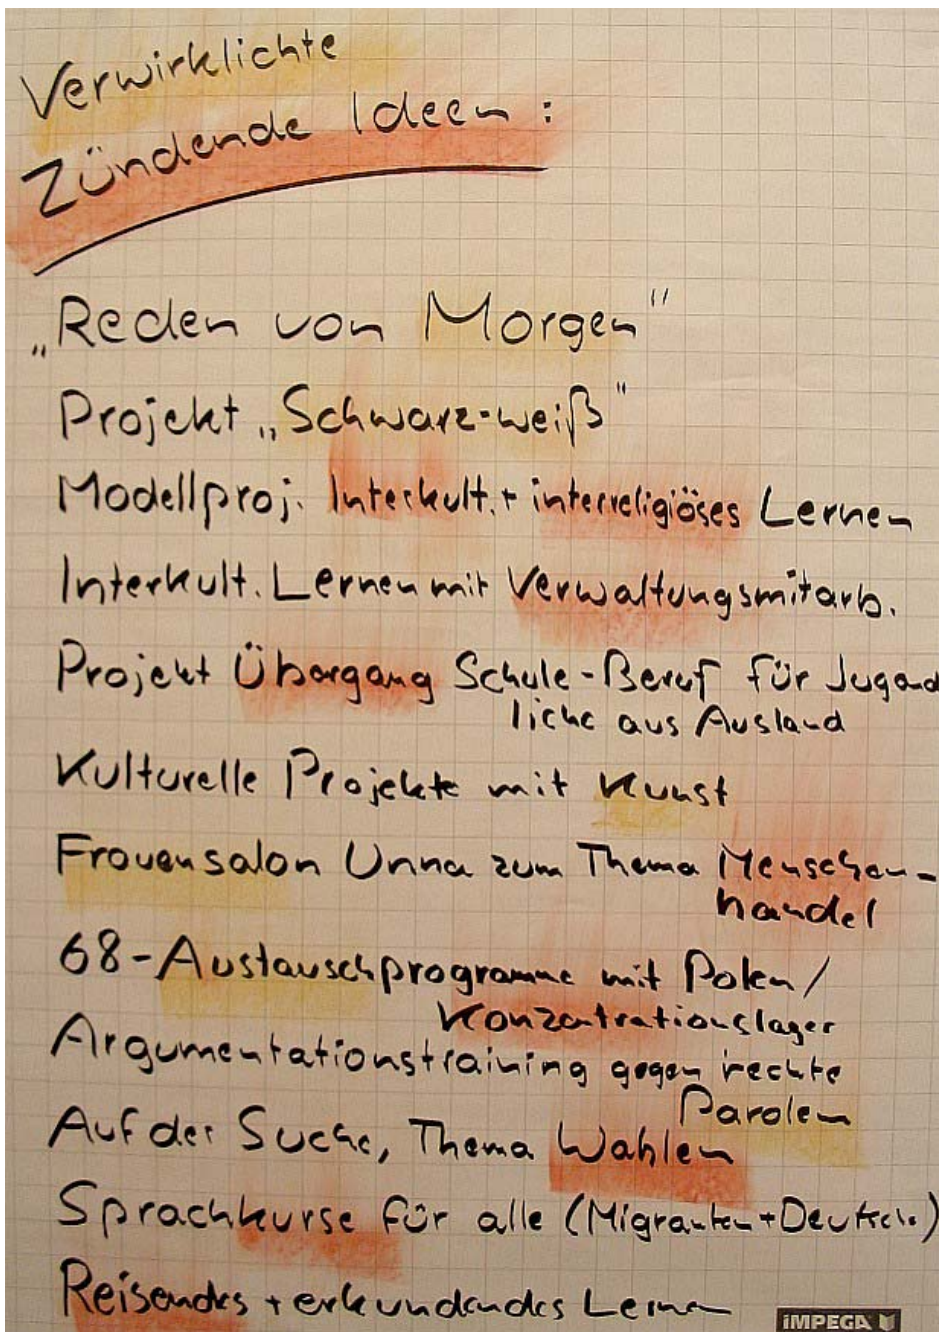 Verwirklichte
Zündende Ideen:
„Reden von Morgen"
Projekt „Schwarz-weiß"
Modellproj. Interkult. + interreligiöses Lernen
Interkult. Lernen mit Verwaltungsmitarb.
Projekt Übergang Schule-Beruf für Jugend
liche aus Ausland
Kulturelle Projekte mit Kunst
Frauensalon Unna zum Thema Menschen-
handel
68-Austauschprogramme mit Polen/
Konzentrationslager
Argumentationstraining gegen rechte
Parolen
Auf der Suche, Thema Wahlen
Sprachkurse für alle (Migranten+Deutsche)
Reisendes + erkundendes Lernen
IMPEGA